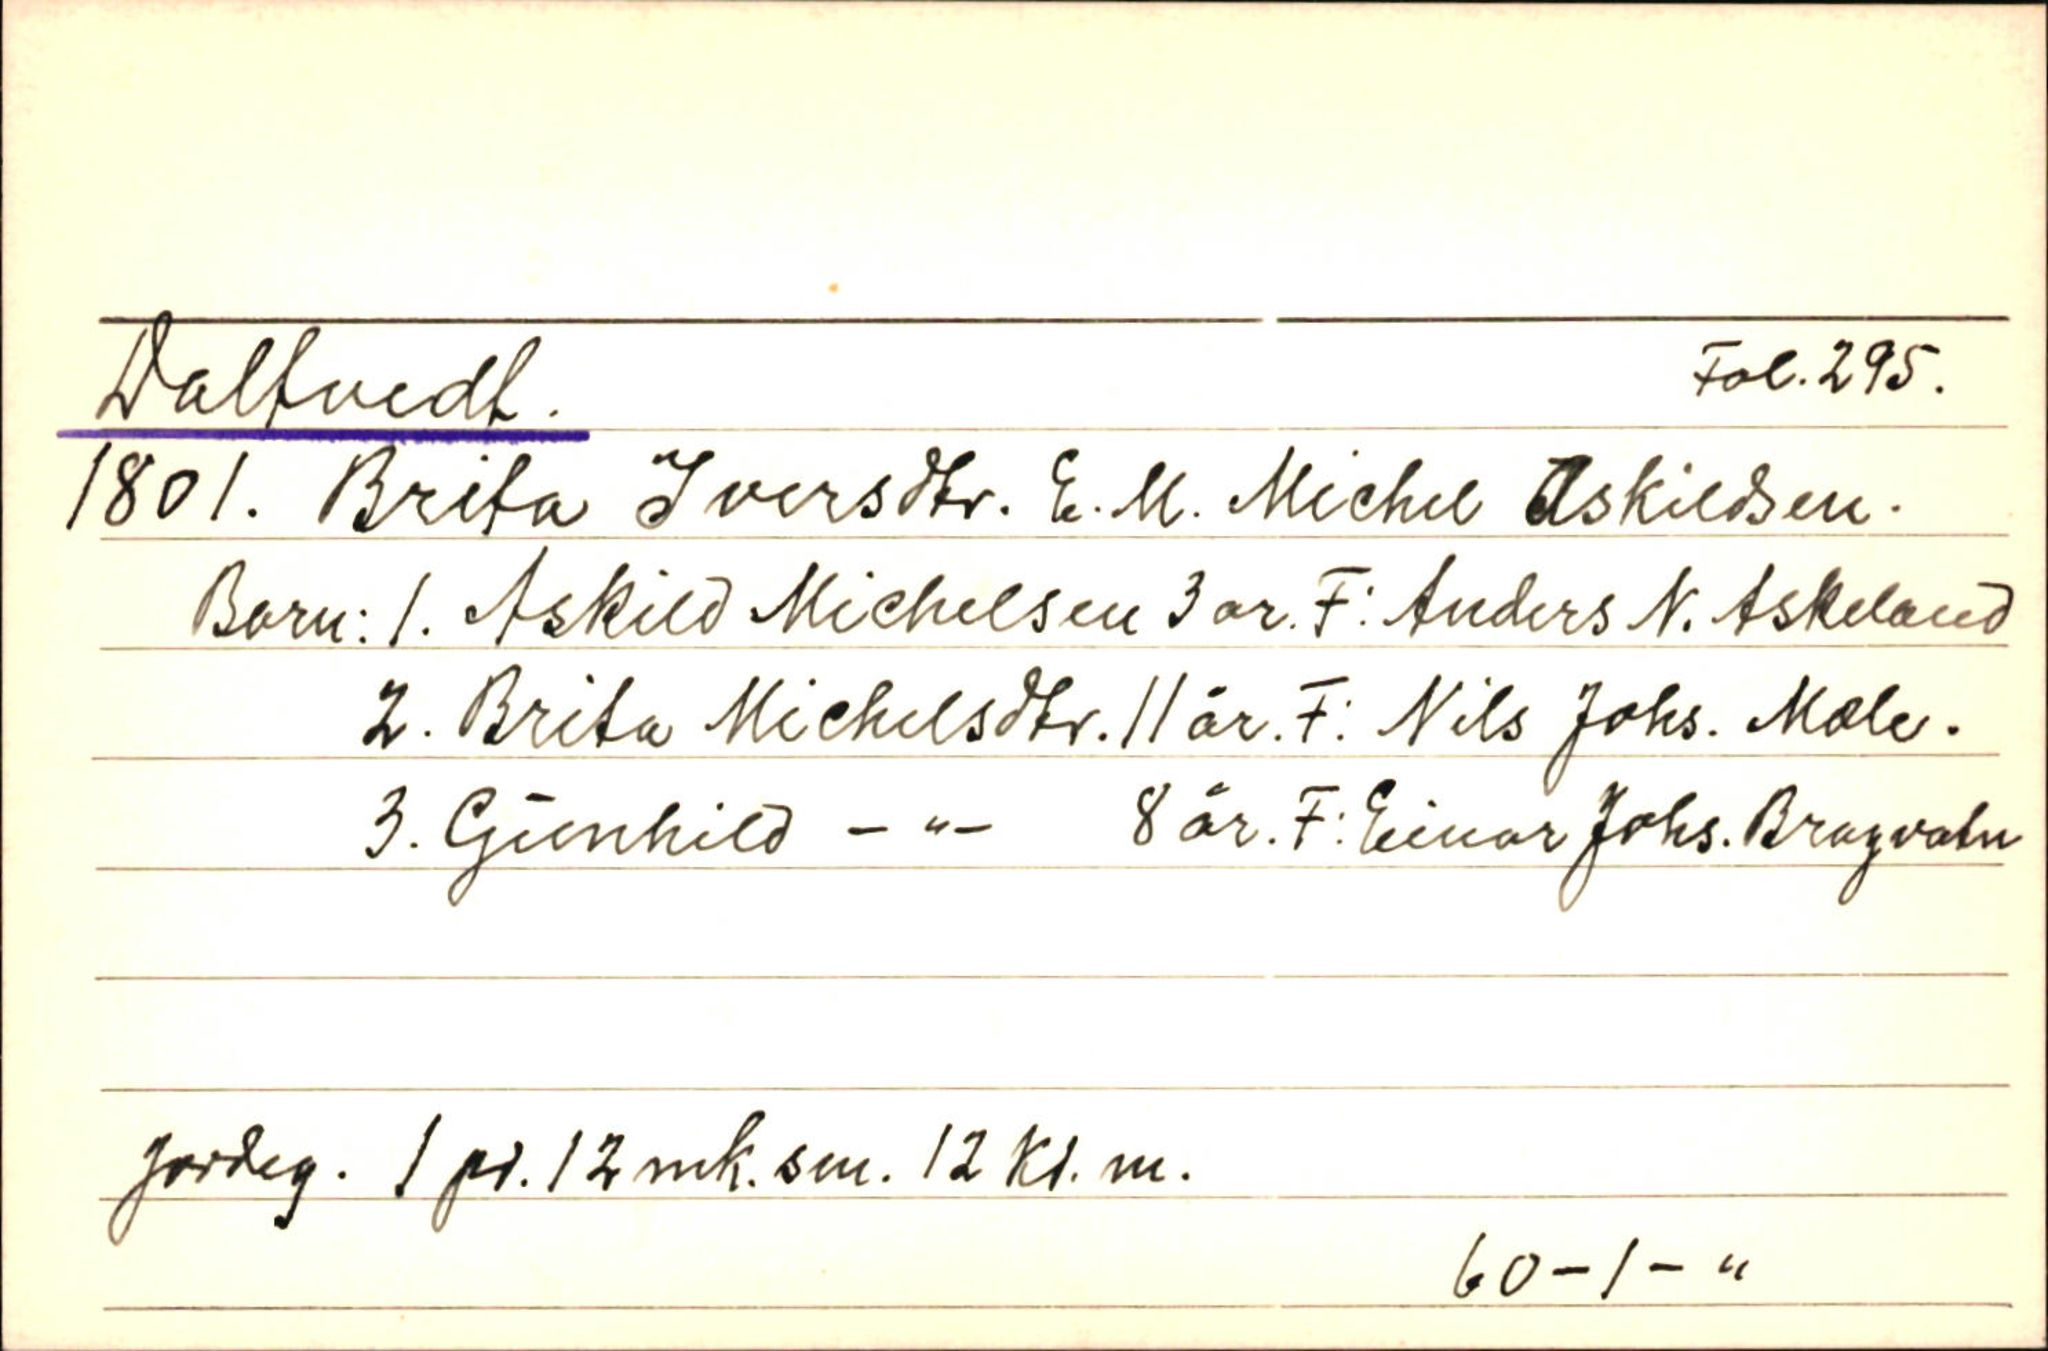 Daltvedt. Fol. 295.
1801. Brita Iversdtr. E. M. Michel Askildsen.
Born: 1. Askild Michelsen 3 ar. F: Anders N. Askeland
2. Brita Michelsdtr. 11 år. F: Nils Johs. Mæle.
3. Gunhild - " - 8 år. F: Einar Johs. Bragvatn
Jordeg. 1 pd. 12 mk. sm. 12 Kl. m.
60 - 1 - "